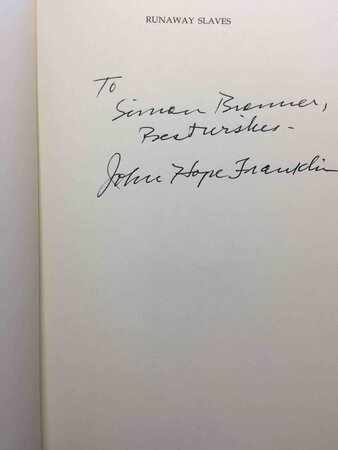 RUNAWAY SLAVES
To
Simon Bronner,
Best wishes -
John Hope Franklin